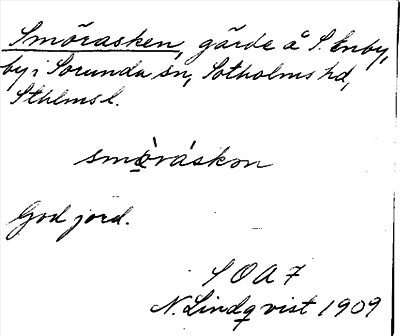 Smörasken, gärde å S. Enby,
by i Sorunda sn, Sotholms hd,
Sthlms l.
smö̀ráskon
God jord.
SOA 7
N. Lindqvist 1909